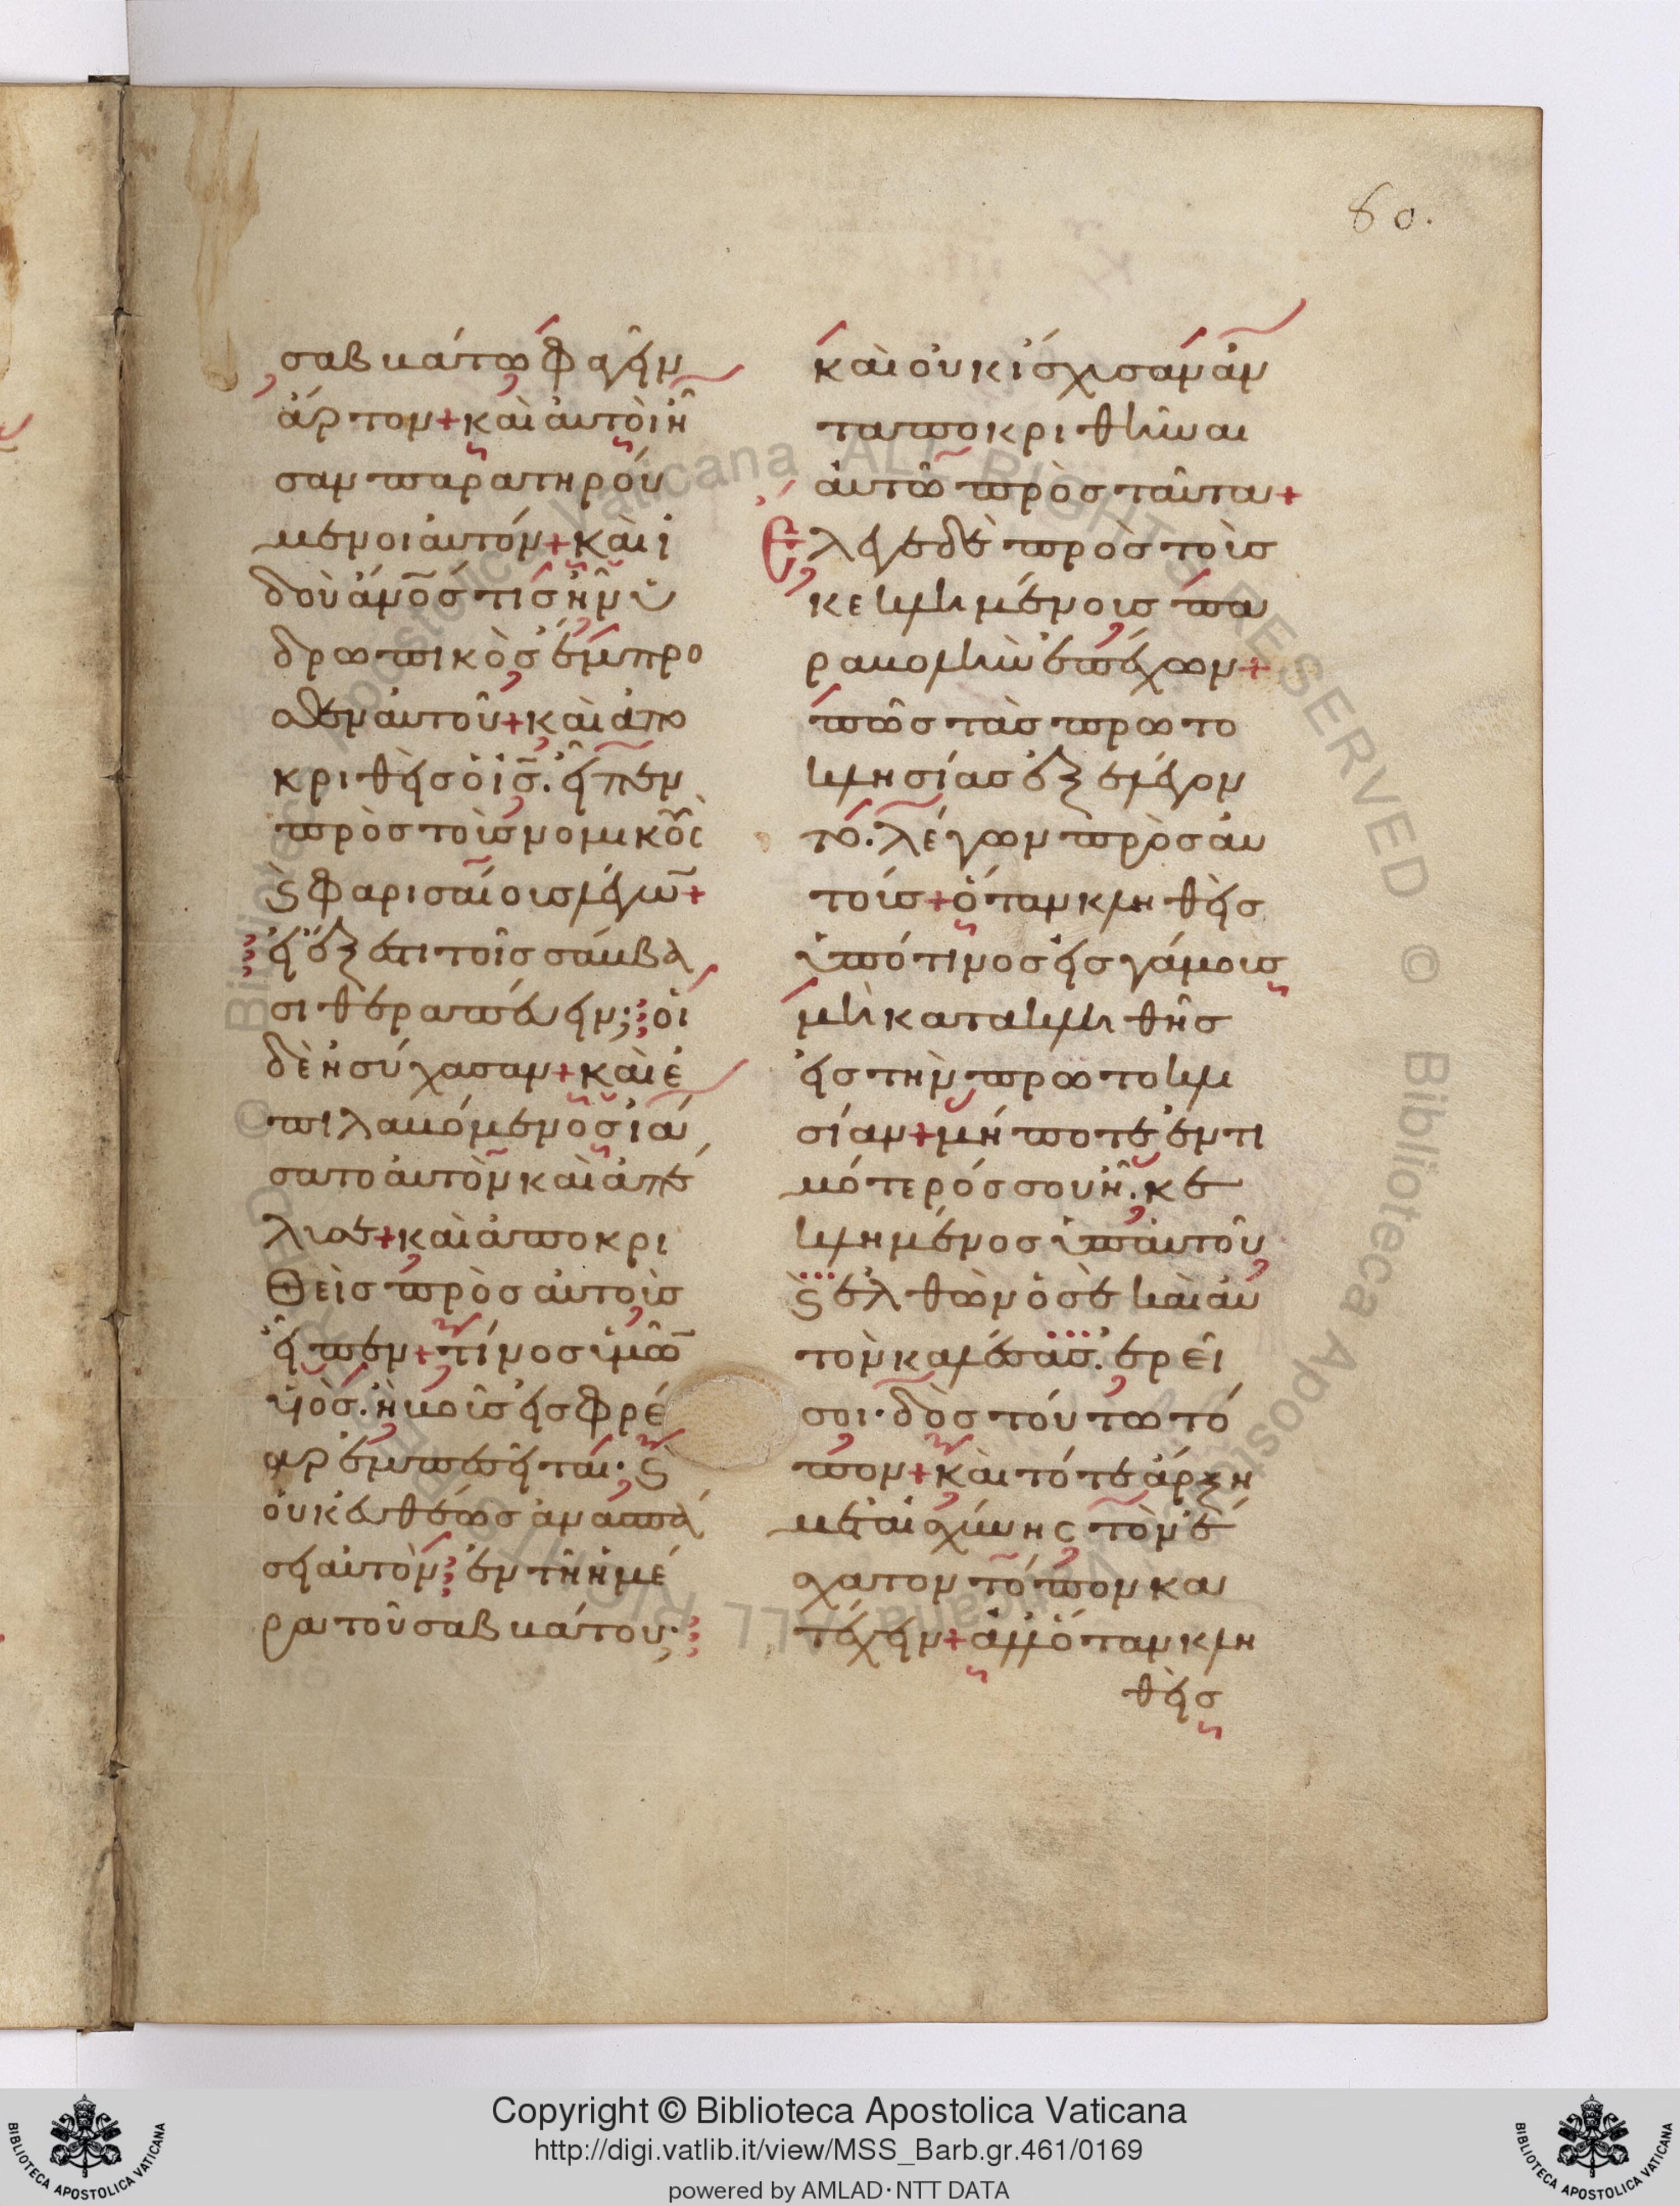 80.
σαββάτω φαγεῖν
ἄρτον + καὶ αὐτοὶ ἦ
σαν παρατηρού
μενοι αὐτόν + καὶ ἰ
δοὺ ἄνος τίς ἦν ὑ
δρωπικὸς ἔμπρο
σθεν αὐτοῦ + καὶ ἀπο
κριθεὶς ὁ ις. εἶπεν
πρὸς τοὺς νομικοὺς
ϗ φαρισαίους λέγων +
εἰ ἔξεστι τοῖς σάββα
σι θεραπεύειν; οἱ
δὲ ἡσύχασαν + καὶ ἐ
πιλαβόμενος ἰά
σατο αὐτὸν καὶ ἀπέ
λυσε + καὶ ἀποκρι
θεὶς πρὸς αὐτοὺς
εἶπεν + τίνος ὑμῶν
υἱὸς. ἢ βοῦς εἰς φρέ
αρ ἐμπεσεῖται· ϗ
οὐκ εὐθέως ἀνασπά
σει αὐτὸν ἐν τῆ ἡμέ
ρα τοῦ σαββάτου·
καὶ οὐκ ἴσχυσαν ἀν
ταποκριθῆναι
αὐτῶ πρὸς ταῦτα +
Ελεγε δὲ πρὸς τοὺς
κεκλημένους πα
ραβολὴν ἐπέχων +
πῶς τὰς πρωτο
κλησίας ἐξελέγον
το. λέγων πρὸς αὐ
τούς + ὅταν κληθεὶς
ὑπό τινος εἰς γάμους
μὴ κατακληθῆς
εἰς τὴν πρωτοκλι
σίαν + μή ποτε ἐντι
μότερός σου ἦ. κε
κλημένος ὑπ' αὐτοῦ
ϗ ἐλθὼν ὁ σὲ καὶ αὐ
τὸν καλέσας. ἐρεῖ
σοι· δὸς τούτω τό
πον + καὶ τότε ἄρξη
μετ' αἰσχύνης τὸν ἔ
σχατον τόπον κα
τέχειν + ἀλλ' ὅταν κλη
θεὶς
Copyright © Biblioteca Apostolica Vaticana
http://digi.vatlib.it/view/MSS_Barb.gr.461/0169
powered by AMLAD·NTT DATA